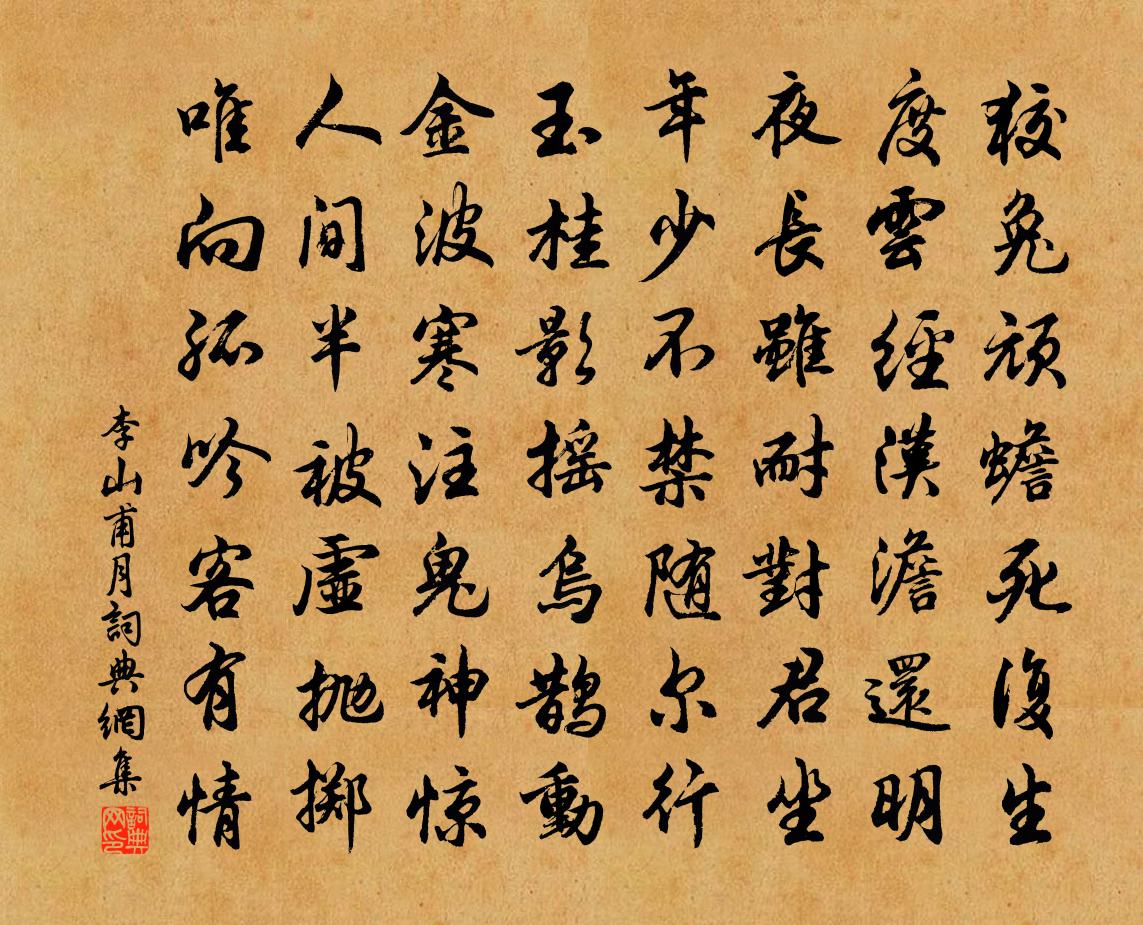 狡兔頑蟾死復生
度雲經漢澹還明
夜長雖耐對君坐
年少不禁随尔行
玉桂影摇烏鹊動
金波寒注鬼神惊
人间半被虚抛掷
唯向孤吟客有情
李山甫月詞典網集
詞典网印